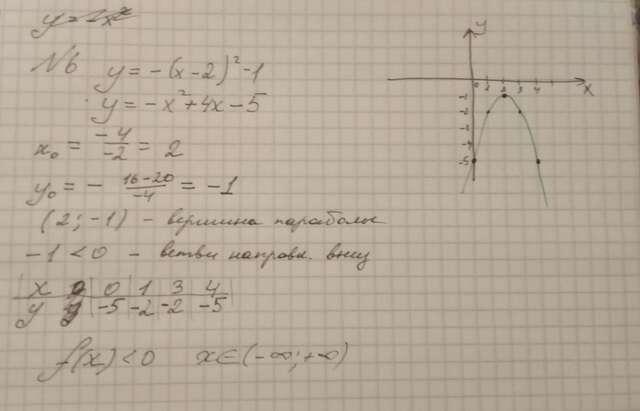 y = -x²
№6 y = -(x-2)² -1
y = -x² + 4x - 5
x₀ = -4/-2 = 2
y₀ = - 16-20/-4 = -1
(2; -1) - вершина параболы
-1 < 0 - ветви направл. вниз
x 0 1 3 4
y -5 -2 -2 -5
f(x) < 0 x ∈ (-∞; +∞)
y
0 1 2 3 4 x
-1
-2
-3
-4
-5